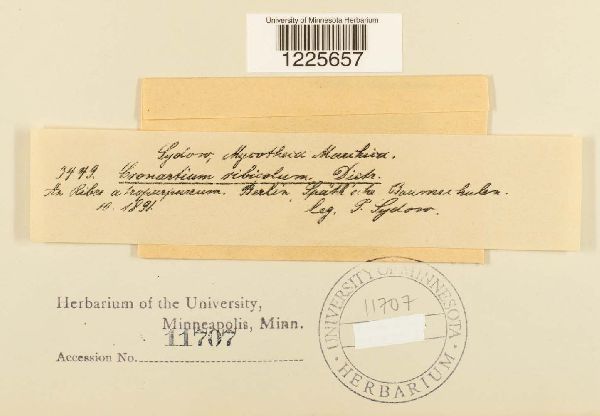 University of Minnesota Herbarium
1225657
Sydow, Mycotheca Marchica.
Cronartium ribicolum, Dietr.
In Ribes atropurpureum. Berlin, Späth'sche Baumschulen.
1891. leg. P. Sydow.
Herbarium of the University,
Minneapolis, Minn.
11707
Accession No.
UNIVERSITY OF MINNESOTA
11707
HERBARIUM